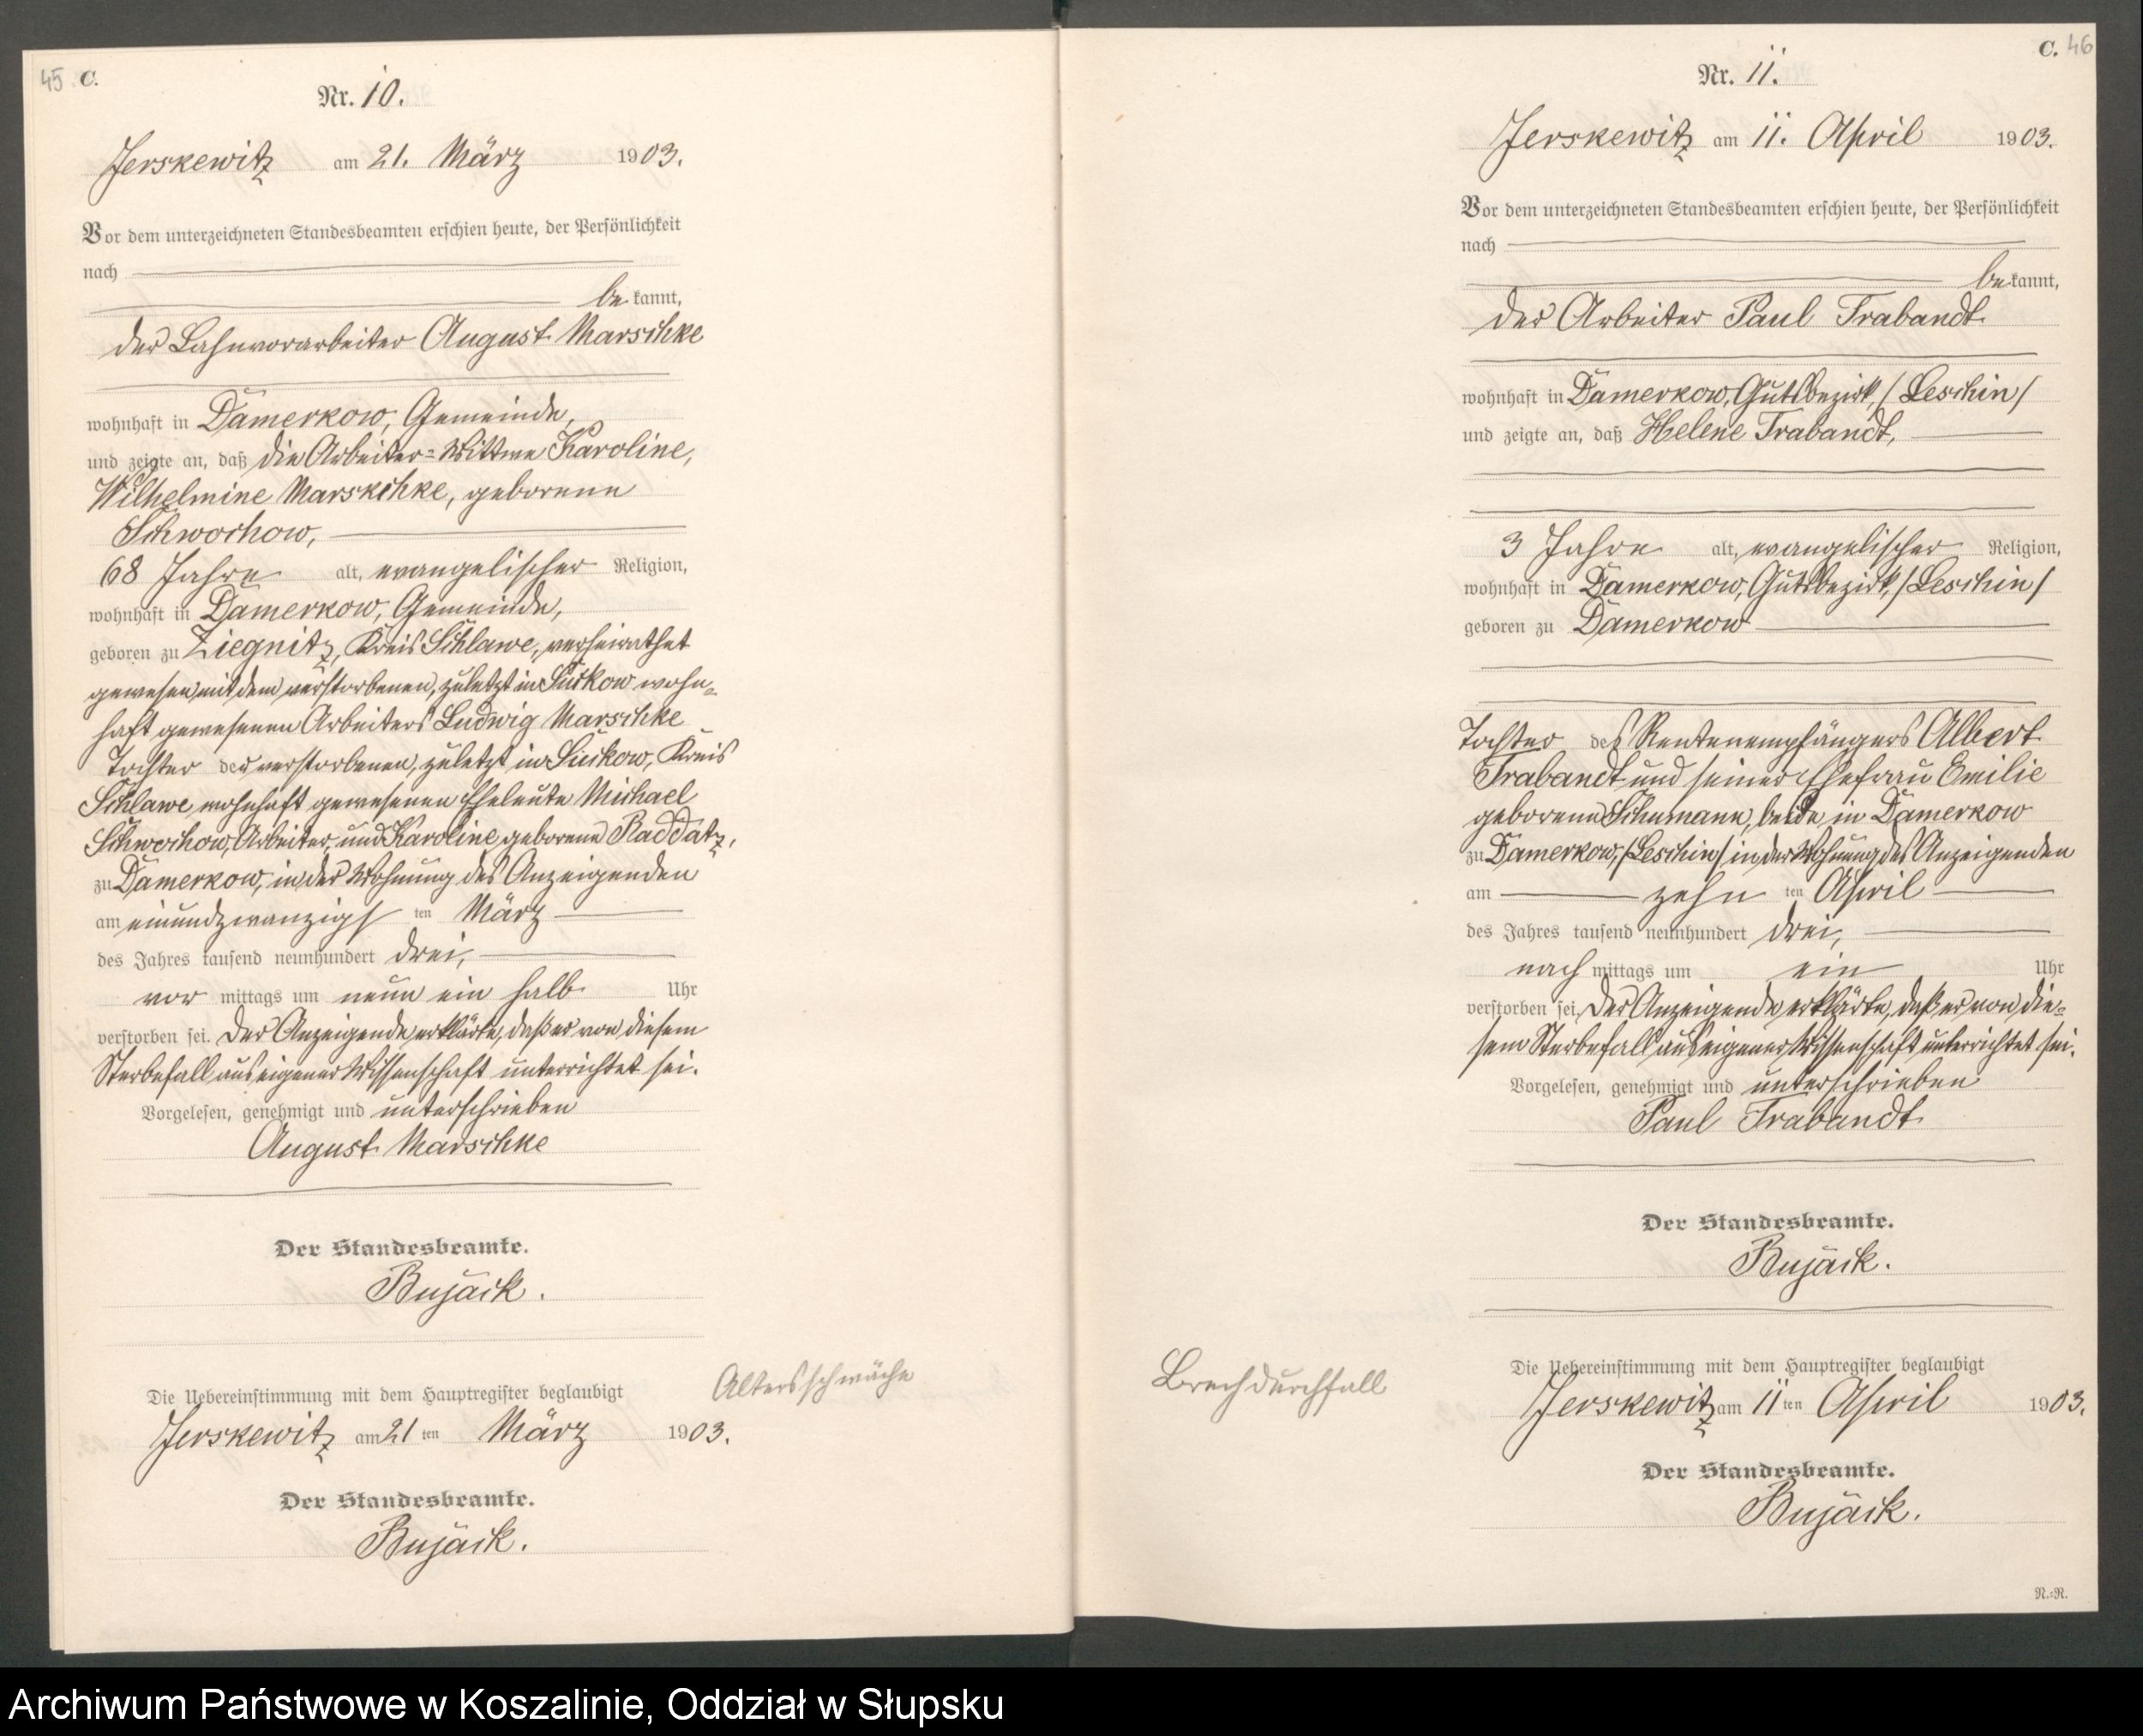 45 C.
Nr. 10.
Jerskewitz am 21. März 1903.
Vor dem unterzeichneten Standesbeamten erschien heute, der Persönlichkeit
nach
be kannt,
der Bahnvorarbeiter August Marschke
wohnhaft in Damerkow, Gemeinde,
und zeigte an, daß die Arbeiter=Wittwe Karoline,
Wilhelmine Marskchke, geborene
Schwochow,
68 Jahre alt, evangelischer Religion,
wohnhaft in Damerkow, Gemeinde,
geboren zu Ziegnitz, Kreis Schlawe, verheirathet
gewesen mit dem verstorbenen, zuletzt in Suckow wohn=
haft gewesenen Arbeiters Ludwig Marschke
Tochter der verstorbenen, zuletzt in Suckow, Kreis
Schlawe wohnhaft gewesenen Eheleute Michael
Schwochow, Arbeiter, und Karoline geborene Raddatz,
zu Damerkow, in der Wohnung des Anzeigenden
am einundzwanzigs ten März
des Jahres tausend neunhundert drei,
vor mittags um neun ein halb Uhr
verstorben sei. Der Anzeigende erklärte, daß er von diesem
Sterbefall aus eigener Wissenschaft unterrichtet sei.
Vorgelesen, genehmigt und unterschrieben
August Marschke
Der Standesbeamte.
Bujack.
Die Uebereinstimmung mit dem Hauptregister beglaubigt
Jerskewitz am 21 ten März 1903.
Der Standesbeamte.
Bujack.
Altersschwäche
C. 46
Nr. 11.
Jerskewitz am 11. April 1903.
Vor dem unterzeichneten Standesbeamten erschien heute, der Persönlichkeit
nach
be kannt,
der Arbeiter Paul Trabandt
wohnhaft in Damerkow, Gutsbezirk, /Leschin/
und zeigte an, daß Helene Trabandt,
3 Jahre alt, evangelischer Religion,
wohnhaft in Damerkow, Gutsbezirk, /Leschin/
geboren zu Damerkow
Tochter des Rentenempfängers Albert
Trabandt und seiner Ehefrau Emilie
geborene Schumann, beide in Damerkow
zu Damerkow, /Leschin/ in der Wohnung des Anzeigenden
am zehn ten April
des Jahres tausend neunhundert drei,
nach mittags um ein Uhr
verstorben sei, Der Anzeigende erklärte, daß er von die=
sem Sterbefall aus eigener Wissenschaft unterrichtet sei.
Vorgelesen, genehmigt und unterschrieben
Paul Trabandt
Der Standesbeamte.
Bujack.
Brechdurchfall
Die Uebereinstimmung mit dem Hauptregister beglaubigt
Jerskewitz am 11 ten April 1903.
Der Standesbeamte.
Bujack.
N.=N.
Archiwum Państwowe w Koszalinie, Oddział w Słupsku